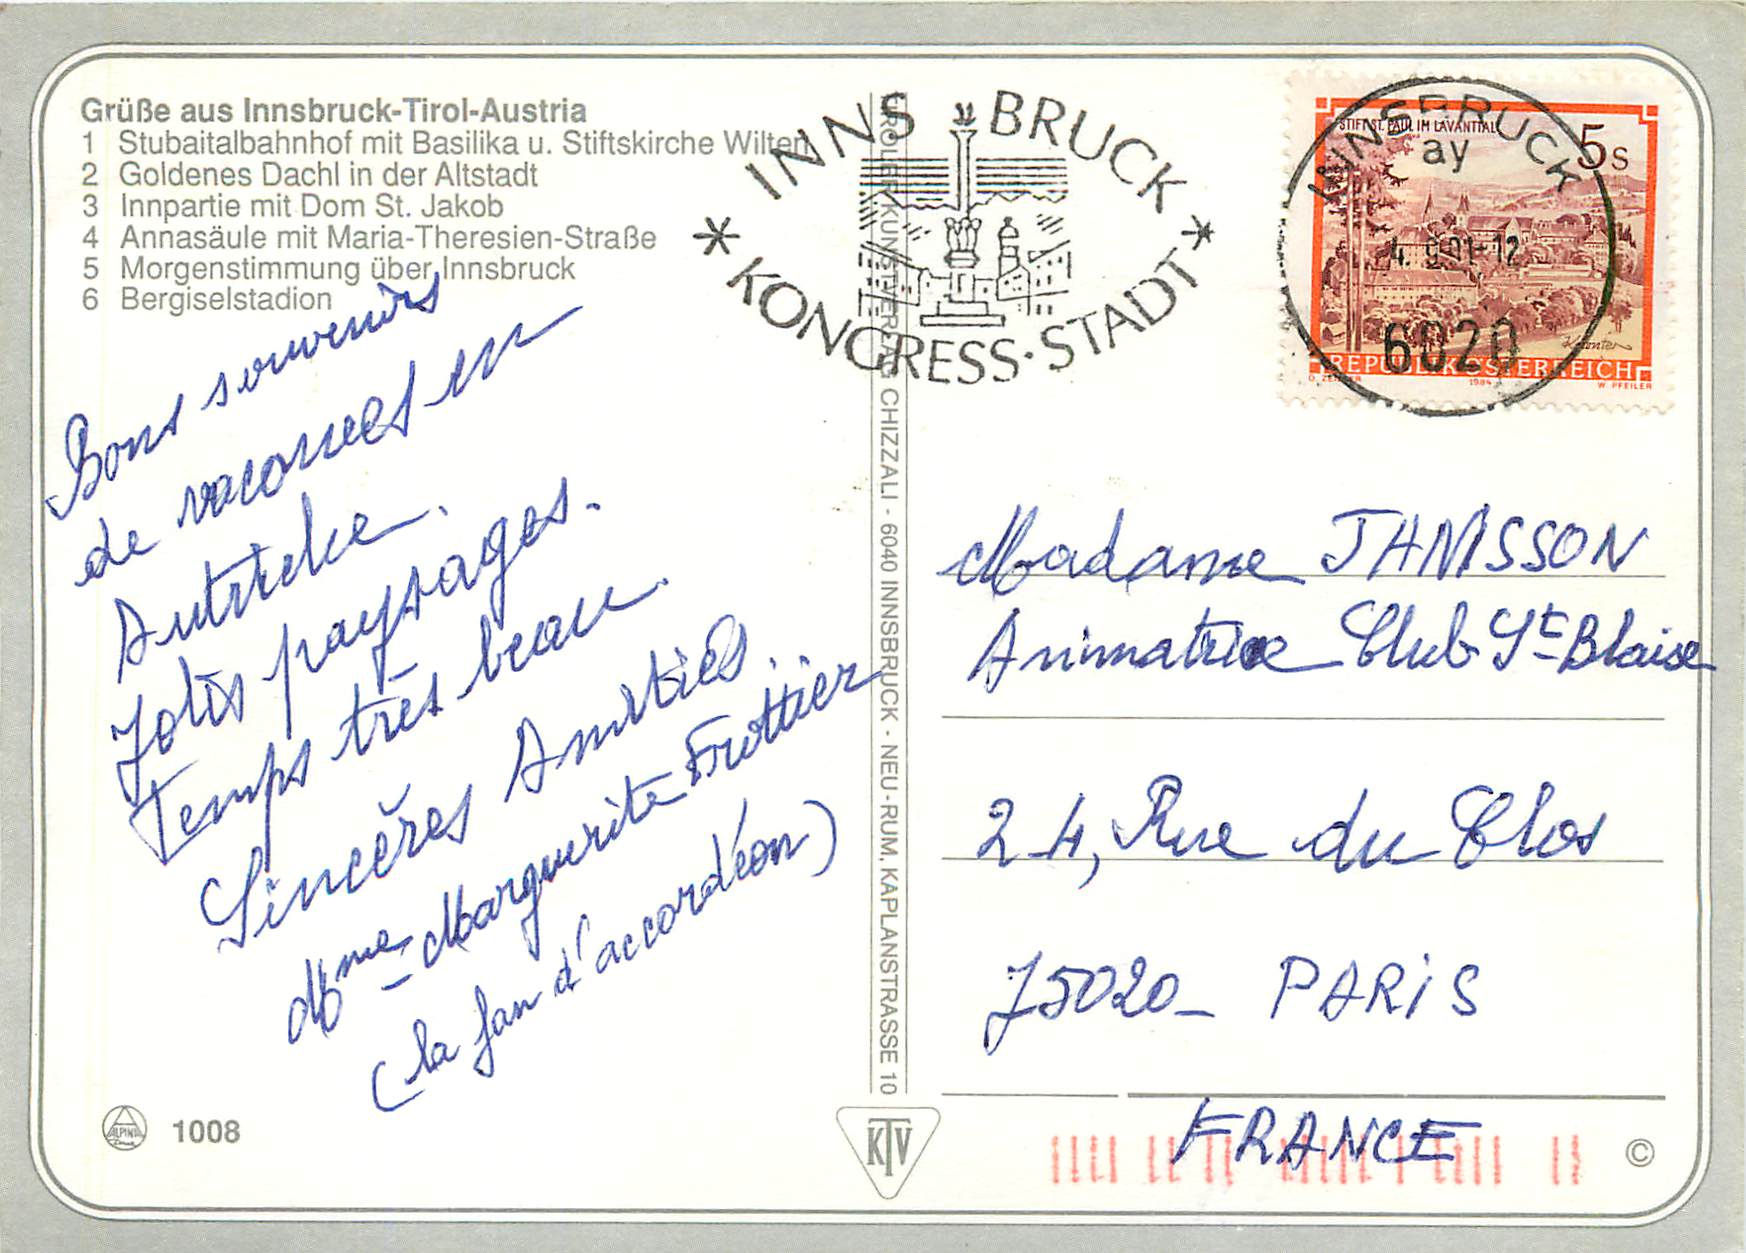 Grüße aus Innsbruck-Tirol-Austria
1 Stubaitalbahnhof mit Basilika u. Stiftskirche Wilten
2 Goldenes Dachl in der Altstadt
3 Innpartie mit Dom St. Jakob
4 Annasäule mit Maria-Theresien-Straße
5 Morgenstimmung über Innsbruck
6 Bergiselstadion
Bons souvenirs
de vacances en
Autriche.
Jolis paysages.
Temps très beau.
Sincères Amitiés.
Mme Marguerite Frottier
(la fan d'accordéon)
ALPINA
1008
INNSBRUCK
KONGRESS·STADT
TIROLER KUNSTVERLAG CHIZZALI - 6040 INNSBRUCK - NEU-RUM, KAPLANSTRASSE 10
KTV
STIFT ST. PAUL IM LAVANTTAL
5s
REPUBLIK ÖSTERREICH
1984
W. PFEILER
INNSBRUCK
ay
4. 9.91-12
6020
Madame JANISSON
Animatrice Club St Blaise
24, Rue du Clos
75020 - PARIS
FRANCE
©